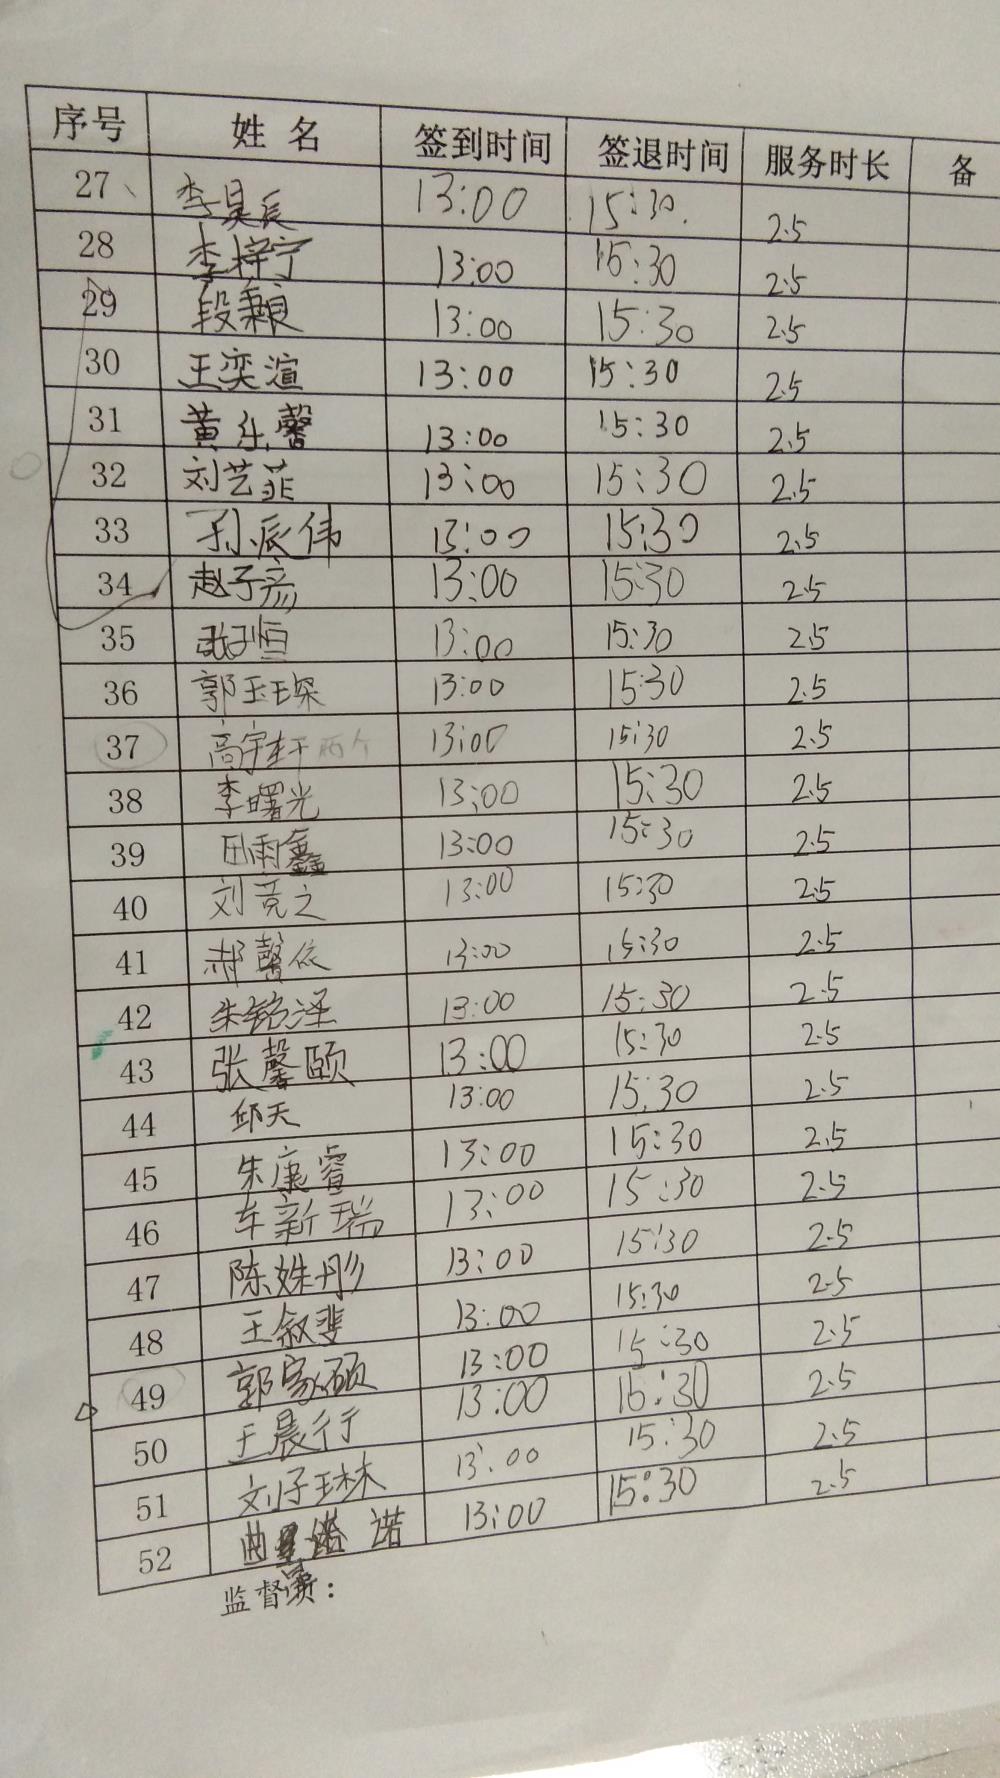 序号 姓名 签到时间 签退时间 服务时长 备
27 李昊辰 13:00 15:30 2.5
28 李梓宁 13:00 15:30 2.5
29 段 13:00 15:30 2.5
30 王奕渲 13:00 15:30 2.5
31 黄乐馨 13:00 15:30 2.5
32 刘艺菲 13:00 15:30 2.5
33 孙辰伟 13:00 15:30 2.5
34 赵子彦 13:00 15:30 2.5
35 张子恒 13:00 15:30 2.5
36 郭玉琛 13:00 15:30 2.5
37 高宇轩 两个 13:00 15:30 2.5
38 李曙光 13:00 15:30 2.5
39 田雨鑫 13:00 15:30 2.5
40 刘竞之 13:00 15:30 2.5
41 郝馨依 13:00 15:30 2.5
42 朱铭泽 13:00 15:30 2.5
43 张馨颐 13:00 15:30 2.5
44 邱天 13:00 15:30 2.5
45 朱康睿 13:00 15:30 2.5
46 车新瑞 13:00 15:30 2.5
47 陈姝彤 13:00 15:30 2.5
48 王叙斐 13:00 15:30 2.5
49 郭家硕 13:00 15:30 2.5
50 王晨行 13:00 16:30 2.5
51 刘子琳 13:00 15:30 2.5
52 曲 诺 13:00 15:30 2.5
监督员：